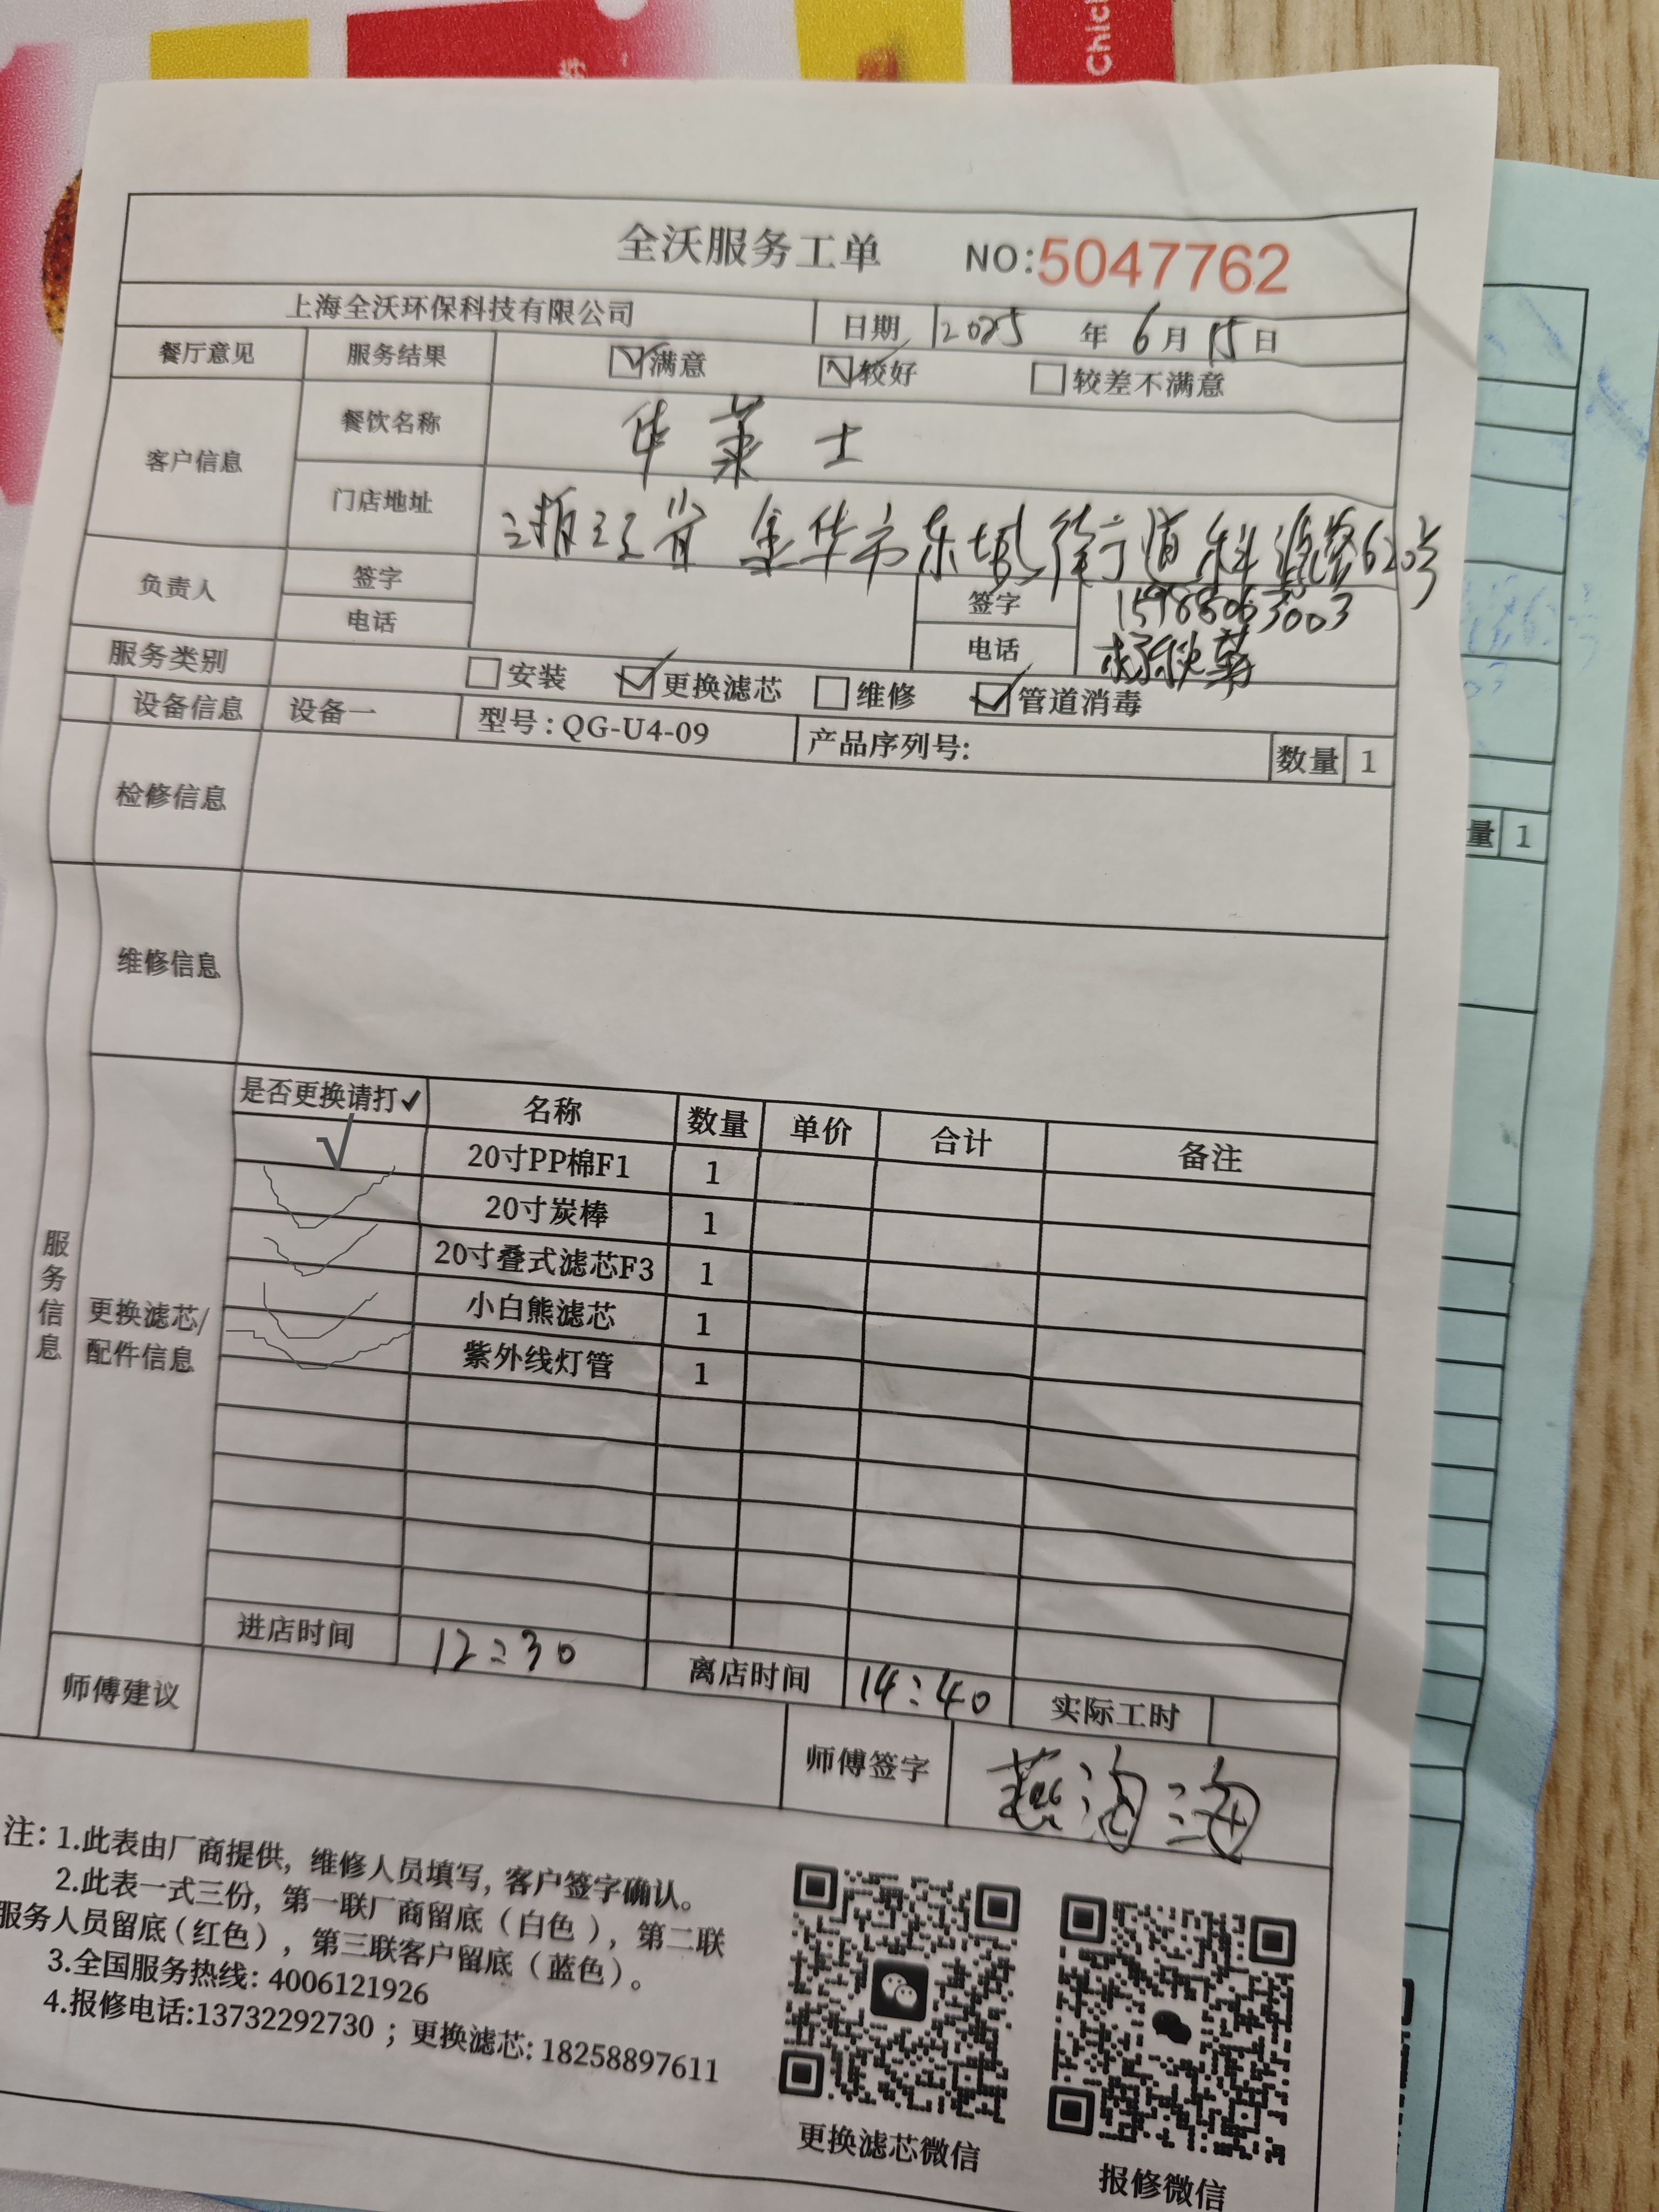 Chick
全沃服务工单 NO:5047762
上海全沃环保科技有限公司 日期 2025 年 6 月 15 日
餐厅意见 服务结果 满意 较好 较差不满意
客户信息 餐饮名称 华莱士
门店地址 浙江省金华市东城街道科源路620号
负责人 签字 签字 15988063003
电话 电话 杨秋菊
服务类别 安装 更换滤芯 维修 管道消毒
设备信息 设备一 型号:QG-U4-09 产品序列号: 数量 1
检修信息
量 1
维修信息
服务信息
更换滤芯/配件信息
是否更换请打✓ 名称 数量 单价 合计 备注
√ 20寸PP棉F1 1
20寸炭棒 1
20寸叠式滤芯F3 1
小白熊滤芯 1
紫外线灯管 1
进店时间 12:30 离店时间 14:40 实际工时
师傅建议 师傅签字 燕海海
注: 1.此表由厂商提供, 维修人员填写, 客户签字确认。
2.此表一式三份, 第一联厂商留底(白色), 第二联
服务人员留底(红色), 第三联客户留底(蓝色)。
3.全国服务热线: 4006121926
4.报修电话:13732292730 ; 更换滤芯: 18258897611
更换滤芯微信 报修微信